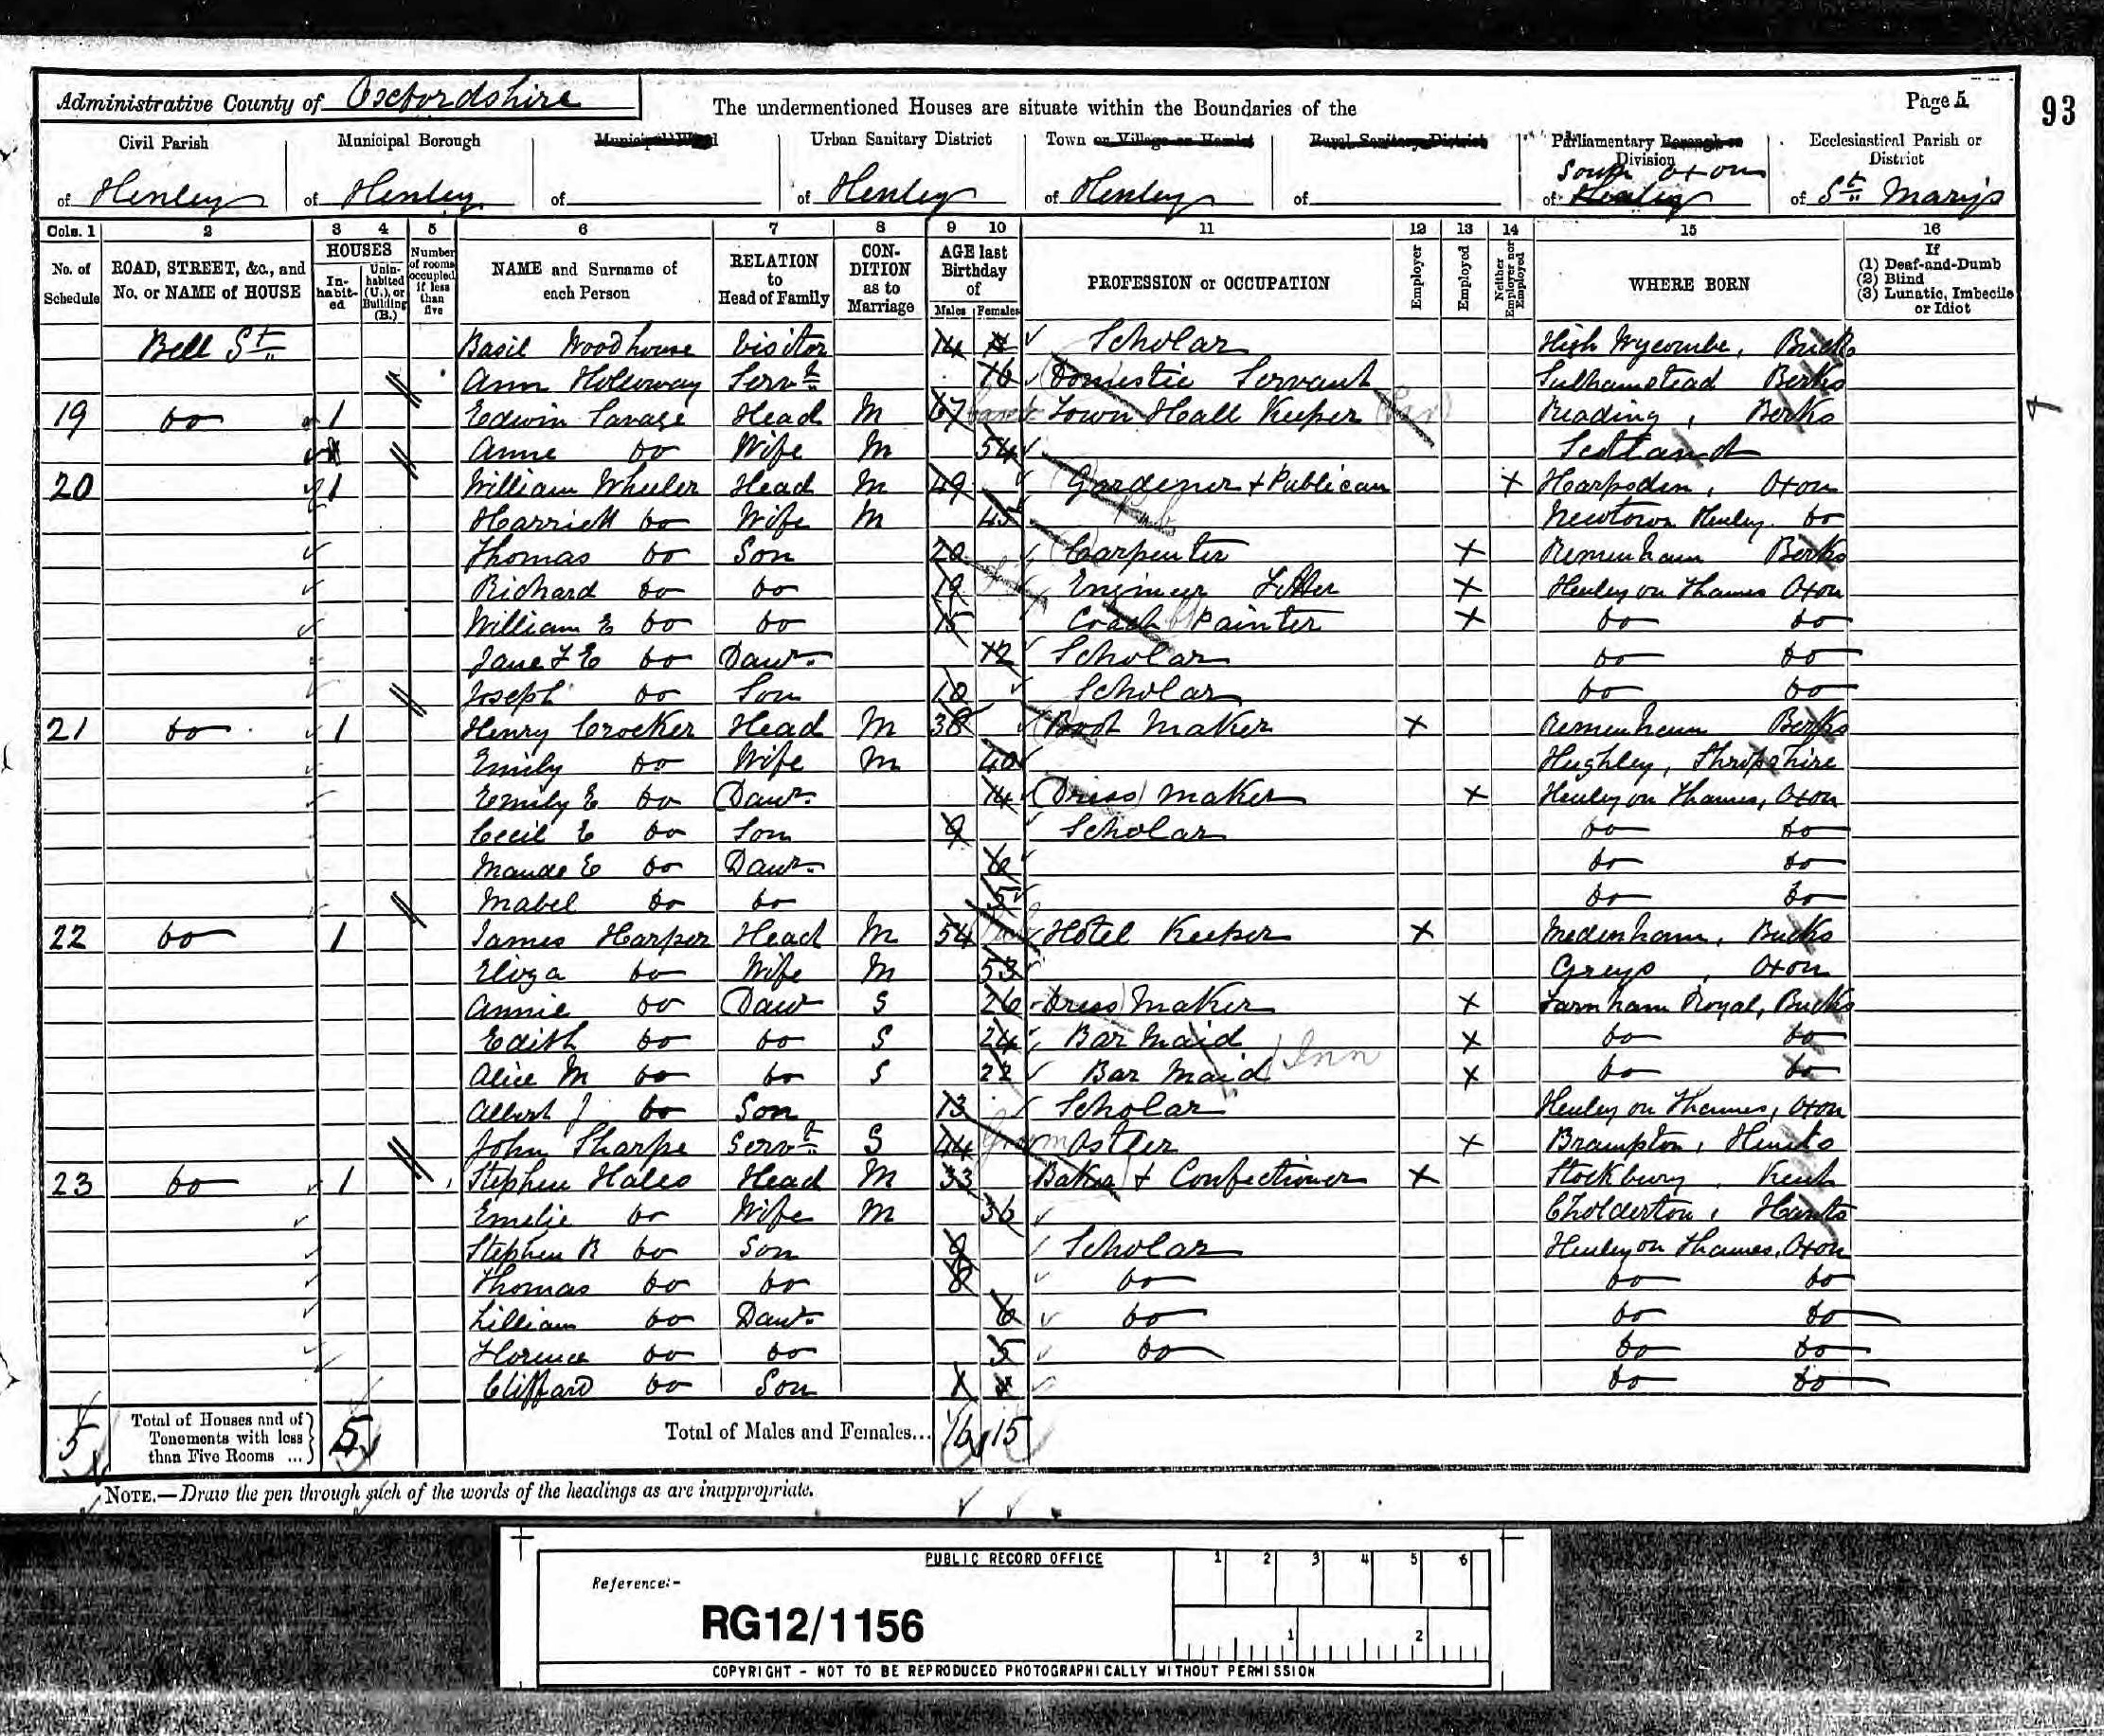 Administrative County of Oxfordshire
The undermentioned Houses are situate within the Boundaries of the
Page 5
93
Civil Parish of Henley
Municipal Borough of Henley
Municipal Ward of
Urban Sanitary District of Henley
Town or Village or Hamlet of Henley
Rural Sanitary District of
Parliamentary Borough or Division of South Oxon Henley
Ecclesiastical Parish or District of St. Mary's
Cols. 1 2 3 4 5 6 7 8 9 10 11 12 13 14 15 16
No. of Schedule
ROAD, STREET, &c., and No. or NAME of HOUSE
HOUSES
Inhabited
Uninhabited (U.), or Building (B.)
Number of rooms occupied if less than five
NAME and Surname of each Person
RELATION to Head of Family
CONDITION as to Marriage
AGE last Birthday of
Males Females
PROFESSION or OCCUPATION
Employer
Employed
Neither Employer nor Employed
WHERE BORN
If (1) Deaf-and-Dumb (2) Blind (3) Lunatic, Imbecile or Idiot
Bell St. Basil Woodhouse Visitor 14 Scholar High Wycombe, Bucks
Ann Holloway Servt. 16 Domestic Servant Sulhamstead Berks
19 Do 1 Edwin Savage Head M 67 Town Hall Keeper Reading, Berks
Anne Do Wife M 54 Scotland
20 1 William Wheeler Head M 49 Gardener + Publican X Harpsden, Oxon
Harriett Do Wife M 45 Newtown Henley Do
Thomas Do Son 20 Carpenter X Remenham Berks
Richard Do Do 19 Engineer Fitter X Henley on Thames Oxon
William E Do Do 15 Coach Painter X Do Do
Jane F E Do Daur. 12 Scholar Do Do
Joseph Do Son 10 Scholar Do Do
21 Do 1 Henry Crocker Head M 38 Boot Maker X Remenham Berks
Emily Do Wife M 40 Hughley, Shropshire
Emily E Do Daur. 14 Dress Maker X Henley on Thames, Oxon
Cecil E Do Son 9 Scholar Do Do
Maude E Do Daur. 6 Do Do
Mabel Do Do 5 Do Do
22 Do 1 James Harper Head M 54 Hotel Keeper X Medenham, Bucks
Eliza Do Wife M 53 Greys, Oxon
Annie Do Daur S 26 Dress Maker X Farnham Royal, Bucks
Edith Do Do S 24 Bar Maid X Do Do
Inn
Alice M Do Do S 22 Bar Maid X Do Do
Albert J Do Son 13 Scholar Henley on Thames, Oxon
John Sharpe Servt. S 44 Groom Ostler X Brampton, Hunts
23 Do 1 Stephen Hales Head M 33 Baker + Confectioner X Stockbury, Kent
Emelie Do Wife M 36 Cholderton, Hants
Stephen R Do Son 9 Scholar Henley on Thames, Oxon
Thomas Do Do 8 Do Do Do
Lilliam Do Daur. 6 Do Do Do
Florence Do Do 5 Do Do Do
Cliffard Do Son 1 Do Do
5 Total of Houses and of Tenements with less than Five Rooms ... 5 Total of Males and Females... 16 15
NOTE.—Draw the pen through such of the words of the headings as are inappropriate.
PUBLIC RECORD OFFICE
1 2 3 4 5 6
Reference:-
RG12/1156
1 2
COPYRIGHT - NOT TO BE REPRODUCED PHOTOGRAPHICALLY WITHOUT PERMISSION